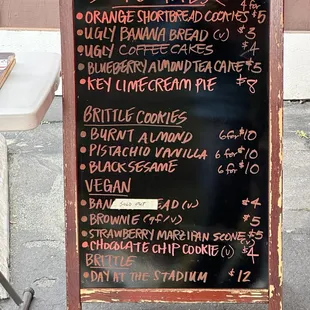 ORANGE SHORTBREAD COOKIES 4 for $5
UGLY BANANA BREAD (V) $3
UGLY COFFEE CAKES $4
BLUEBERRY ALMOND TEA CAKE $5
KEY LIME CREAM PIE $8
BRITTLE COOKIES
BURNT ALMOND 6 for $10
PISTACHIO VANILLA 6 for $10
BLACK SESAME 6 for $10
VEGAN
BAN SOLD OUT EAD (V) $4
BROWNIE (gf/v) $5
STRAWBERRY MARZIPAN SCONE (V) $5
CHOCOLATE CHIP COOKIE (V) $4
BRITTLE
DAY AT THE STADIUM $12